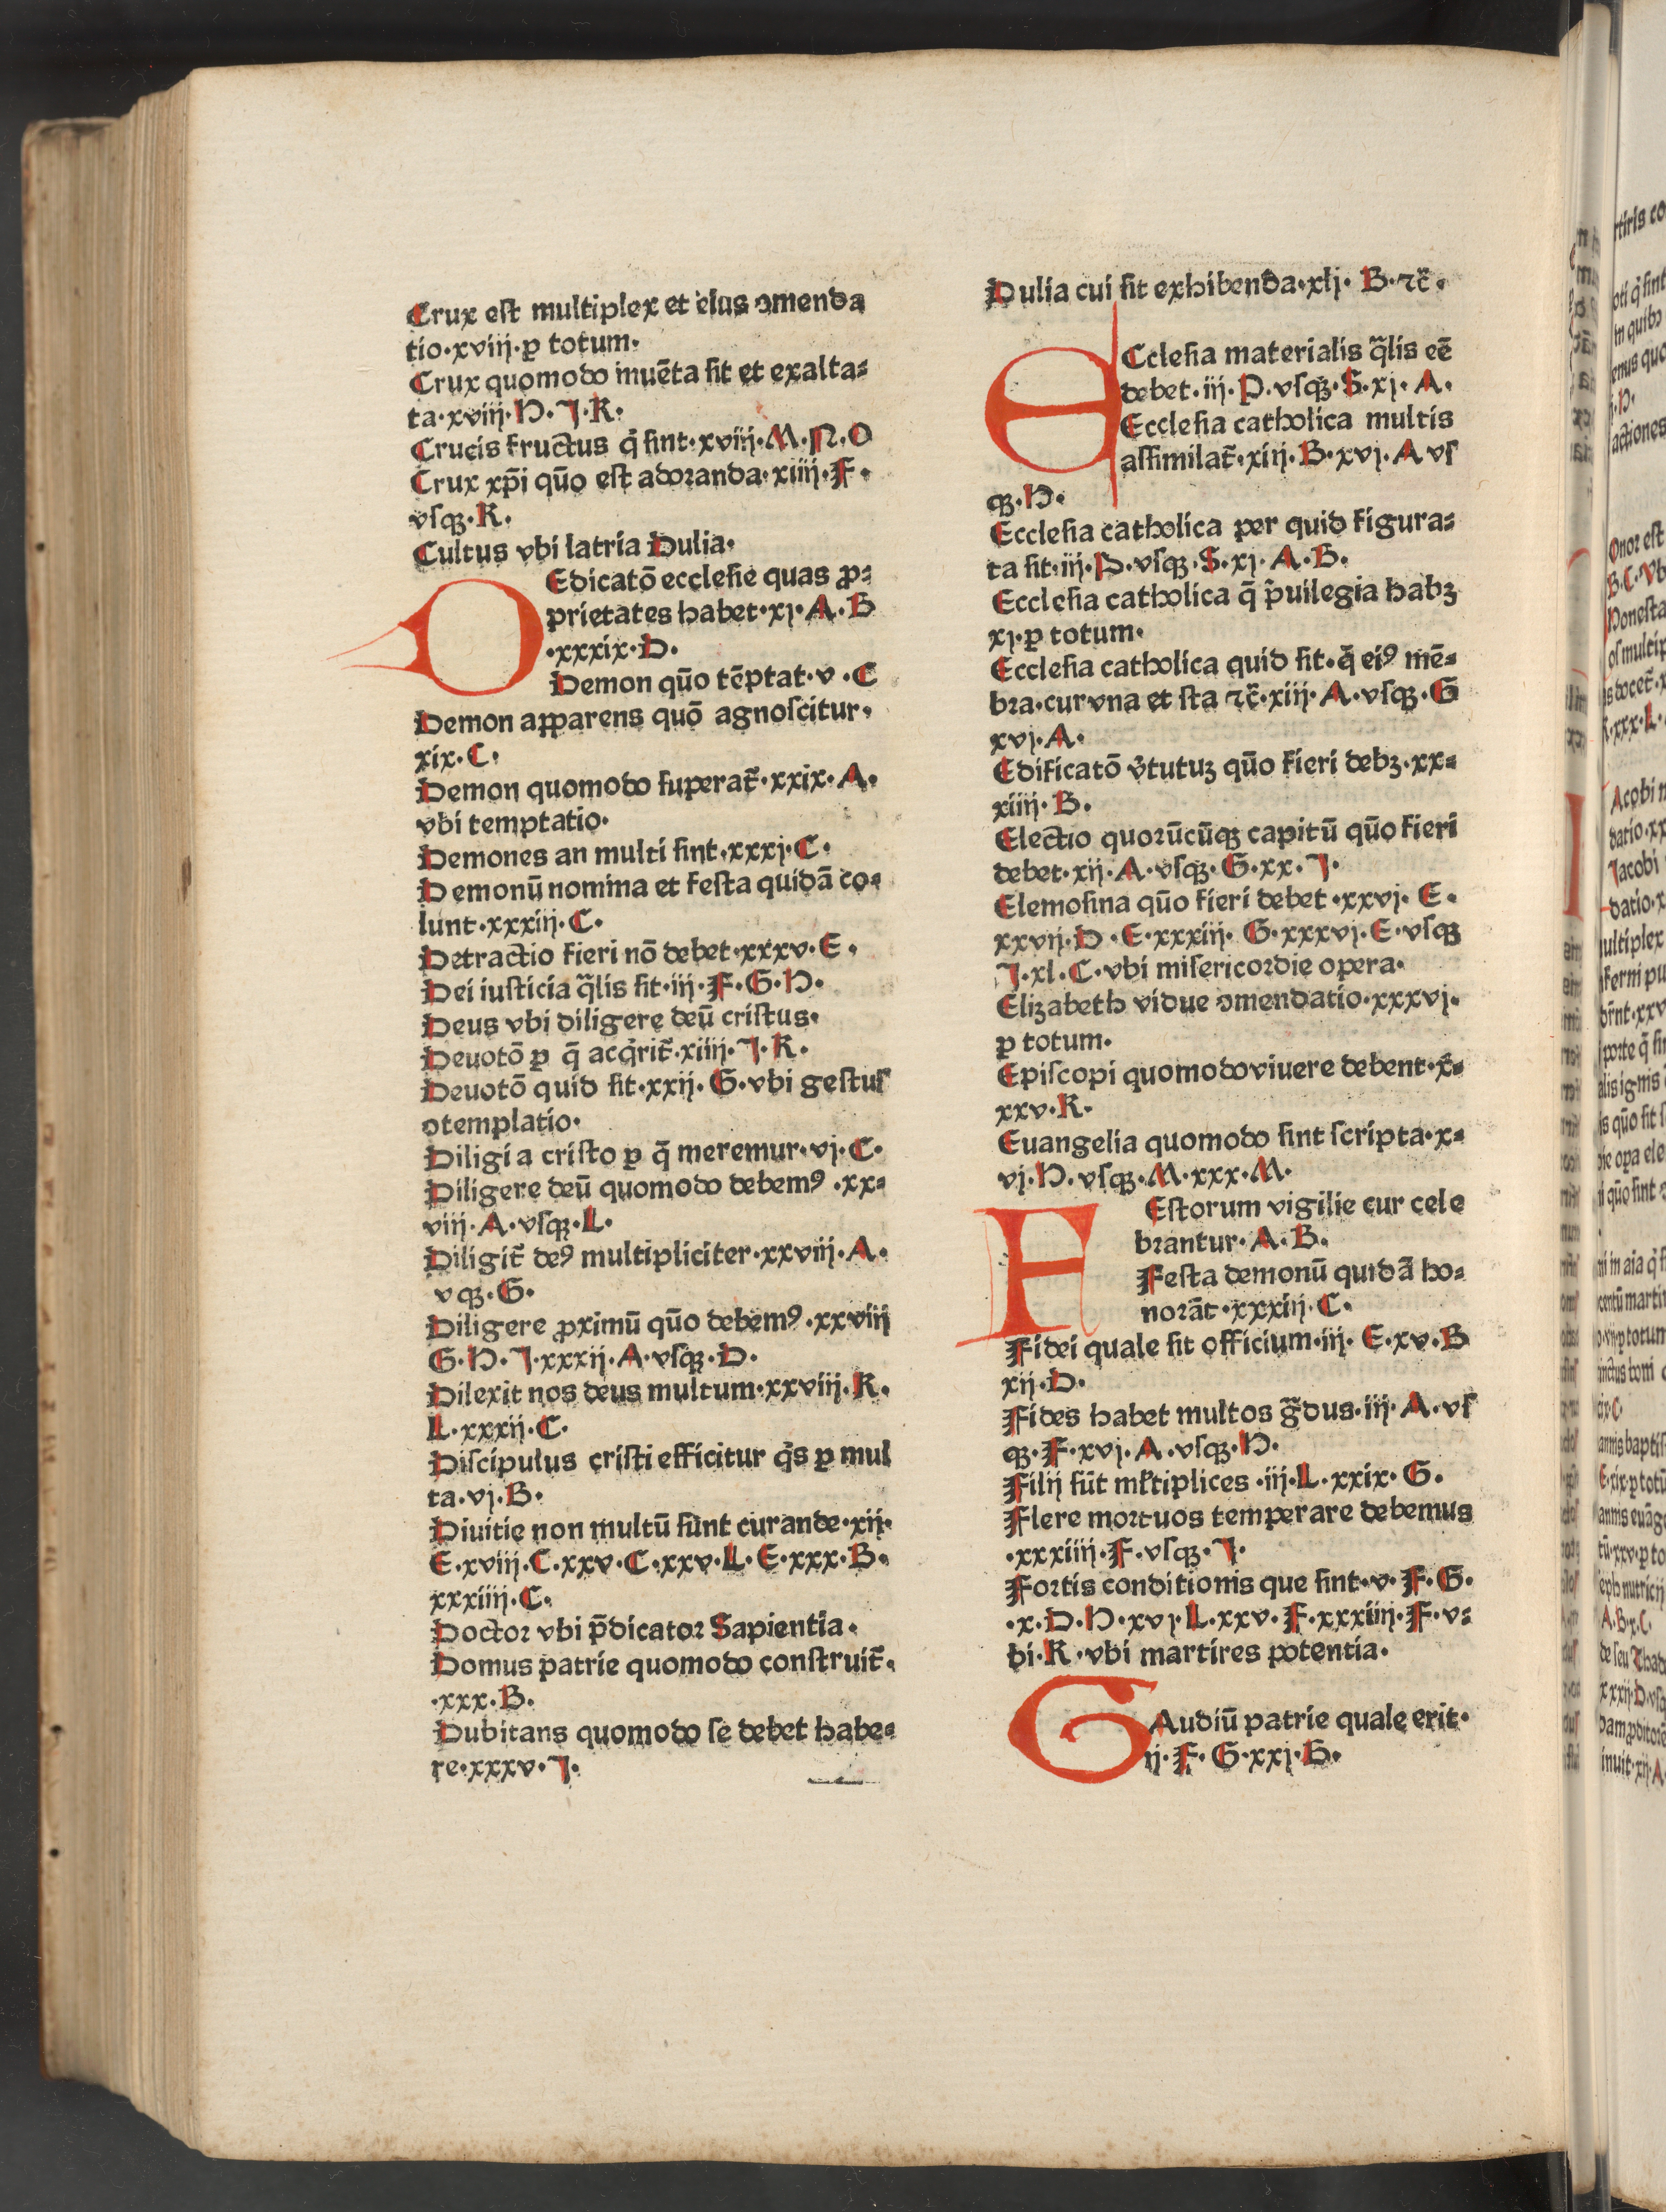 Crux est multiplex et eius ↄmenda
tio·xviij·ꝑ totum·
Crux quomodo inuēta sit et exalta⸗
ta·xviij·H·J·K·
Crucis fructus q̇ sint·xviij·M·N·O
Crux xp̄i quō est adoranda·xiiij·F·
vsqꝫ·K·
Cultus vbi latria Dulia·
DEdicatō ecclesie quas ꝓ⸗
prietates habet·xj·A·B
·xxxix·D·
Demon quō tēptat·v·C
Demon apparens quō agnoscitur·
xix·C·
Demon quomodo superat̄·xxix·A·
vbi temptatio·
Demones an multi sint·xxxj·C·
Demonū nomina et festa quidā co⸗
lunt·xxxiij·C·
Detractio fieri nō debet·xxxv·E·
Dei iusticia q̄lis sit·iij·F·G·H·
Deus vbi diligere deū cristus·
Deuotō ꝑ q̄ acq̇rit̄·xiiij·J·K·
Deuotō quid sit·xxij·G·vbi gestus
ↄtemplatio·
Diligi a cristo ꝑ q̄ meremur·vj·C·
Diligere deū quomodo debemꝰ·xx⸗
viij·A·vsqꝫ·L·
Diligit̄ deꝰ multipliciter·xxviij·A·
v qꝫ·G·
Diligere ꝓximū quō debemꝰ·xxviij
G·H·J·xxxij·A·vsqꝫ·D·
Dilexit nos deus multum·xxviij·K·
L·xxxij·C·
Discipulus cristi efficitur q̇s ꝑ mul
ta·vj·B·
Diuitie non multū sunt curande·xij·
E·xviij·C·xxv·C·xxv·L·E·xxx·B·
xxxiiij·C·
Doctor vbi p̄dicator Sapientia·
Domus patrie quomodo construit̄·
·xxx·B·
Dubitans quomodo se debet habe⸗
re·xxxv·J·
Dulia cui sit exhibenda·xlj·B·⁊c̄·
ECclesia materialis q̄lis eē
debet·iij·P·vsqꝫ·S·xj·A·
Ecclesia catholica multis
assimilat̄·xiij·B·xvj·A vs
qꝫ·H·
Ecclesia catholica per quid figura⸗
ta sit·iij·P·vsqꝫ·S·xj·A·B·
Ecclesia catholica q̄ p̄uilegia habꝫ
xj·ꝑ totum·
Ecclesia catholica quid sit·q̄ eiꝰ mē⸗
bra·cur vna et sta ⁊c̄·xiij·A·vsqꝫ·G
xvj·A·
Edificatō v̄tutuꝫ quō fieri debꝫ·xx⸗
xiiij·B·
Electio quorūcūqꝫ capitū quō fieri
debet·xij·A·vsqꝫ·G·xx·J·
Elemosina quō fieri debet·xxvj·E·
xxvij·D·E·xxxiij·G·xxxvj·E·vsqꝫ
J·xl·C·vbi misericordie opera·
Elizabeth vidue ↄmendatio·xxxvj·
ꝑ totum·
Episcopi quomodo viuere debent·x⸗
xxv·K·
Euangelia quomodo sint scripta·x⸗
vj·H·vsqꝫ·M·xxx·M·
FEstorum vigilie cur cele
brantur·A·B·
Festa demonū quidā ho⸗
norāt·xxxiij·C·
Fidei quale sit officium·iij·E·xv·B
xij·D·
Fides habet multos g̃dus·iij·A·vs
qꝫ·F·xvj·A·vsqꝫ·H·
Filij sūt ml̄tiplices·iij·L·xxix·G·
Flere mortuos temperare debemus
·xxxiiij·F·vsqꝫ·J·
Fortis conditionis que sint·v·F·G·
·x·D·H·xvj·L·xxv·F·xxxiiij·F·v⸗
bi·K·vbi martires potentia·
GAudiū patrie quale erit·
ij·F·G·xxj·H·